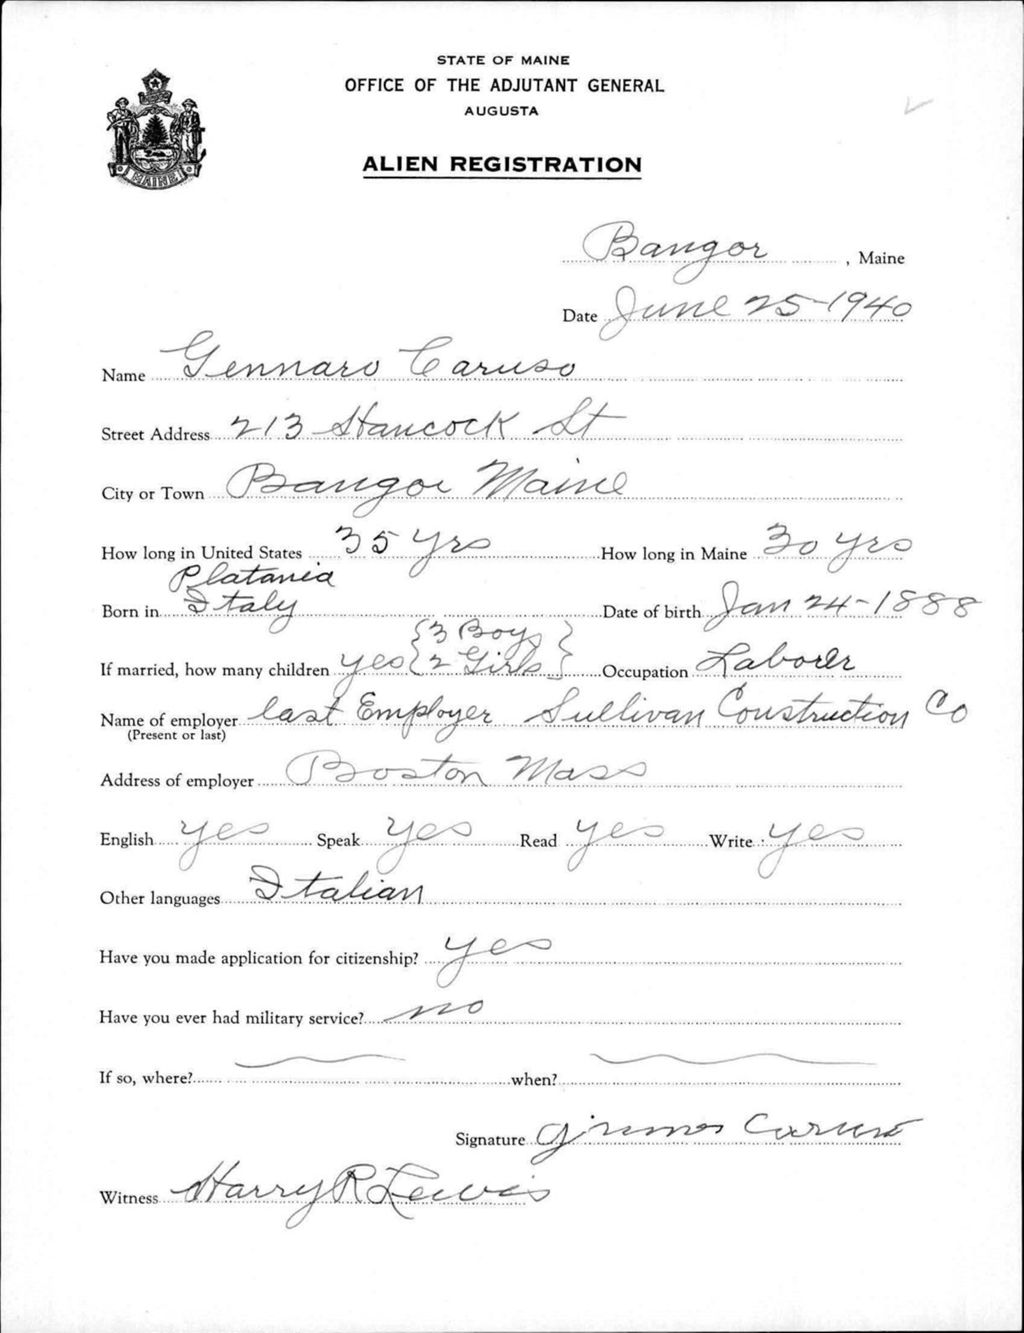 STATE OF MAINE
OFFICE OF THE ADJUTANT GENERAL
AUGUSTA
ALIEN REGISTRATION
MAINE
Bangor, Maine
Date June 25-1940
Name Gennaro Caruso
Street Address 213 Hancock St
City or Town Bangor Maine
How long in United States 35 yrs How long in Maine 30 yrs
Platania
Born in Italy Date of birth Jan 24-1888
3 Boys
If married, how many children yes 2 Girls Occupation Laborer
Name of employer last Employer Sullivan Construction Co
(Present or last)
Address of employer Boston Mass
English yes Speak yes Read yes Write yes
Other languages Italian
Have you made application for citizenship? yes
Have you ever had military service? no
If so, where? when?
Signature Caruso
Witness Harry R Lewis